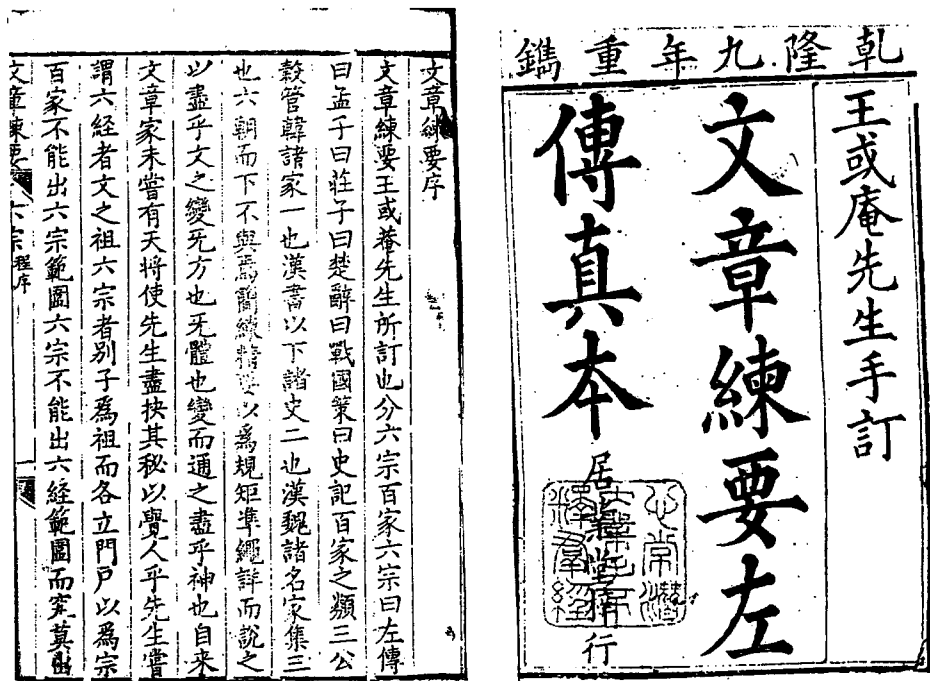 乾隆九年重鐫
王或庵先生手訂
文章練要左
傳真本
居業堂行
文章練要序
文章練要王或菴先生所訂也分六宗百家六宗曰左傳
曰孟子曰莊子曰楚辭曰戰國策曰史記百家之類三公
穀管韓諸家一也漢書以下諸史二也漢魏諸名家集三
也六朝而下不與焉簡練精要以為規矩準繩詳而說之
以盡乎文之變旡方也旡體也變而通之盡乎神也自来
文章家未嘗有天將使先生盡抉其秘以覺人乎先生嘗
謂六経者文之祖六宗者别子爲祖而各立門戸以爲宗
百家不能出六宗範圍六宗不能出六経範圍而究莫出
文章練要
六宗
程序
一